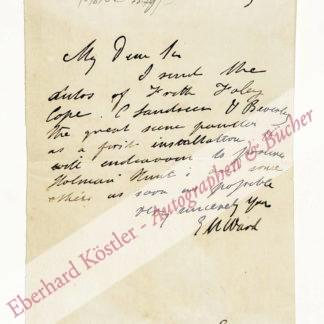 My Dear Sir
I send the
autos of Frith Foley
Cope. C Sandreen & Beverley
the great scene painter
as a first installation I
will endeavour to procure
Holman Hunt's & some
others as soon as possible
very sincerely yrs
E M Ward
Eberhard Köstler - Autographen & Bücher